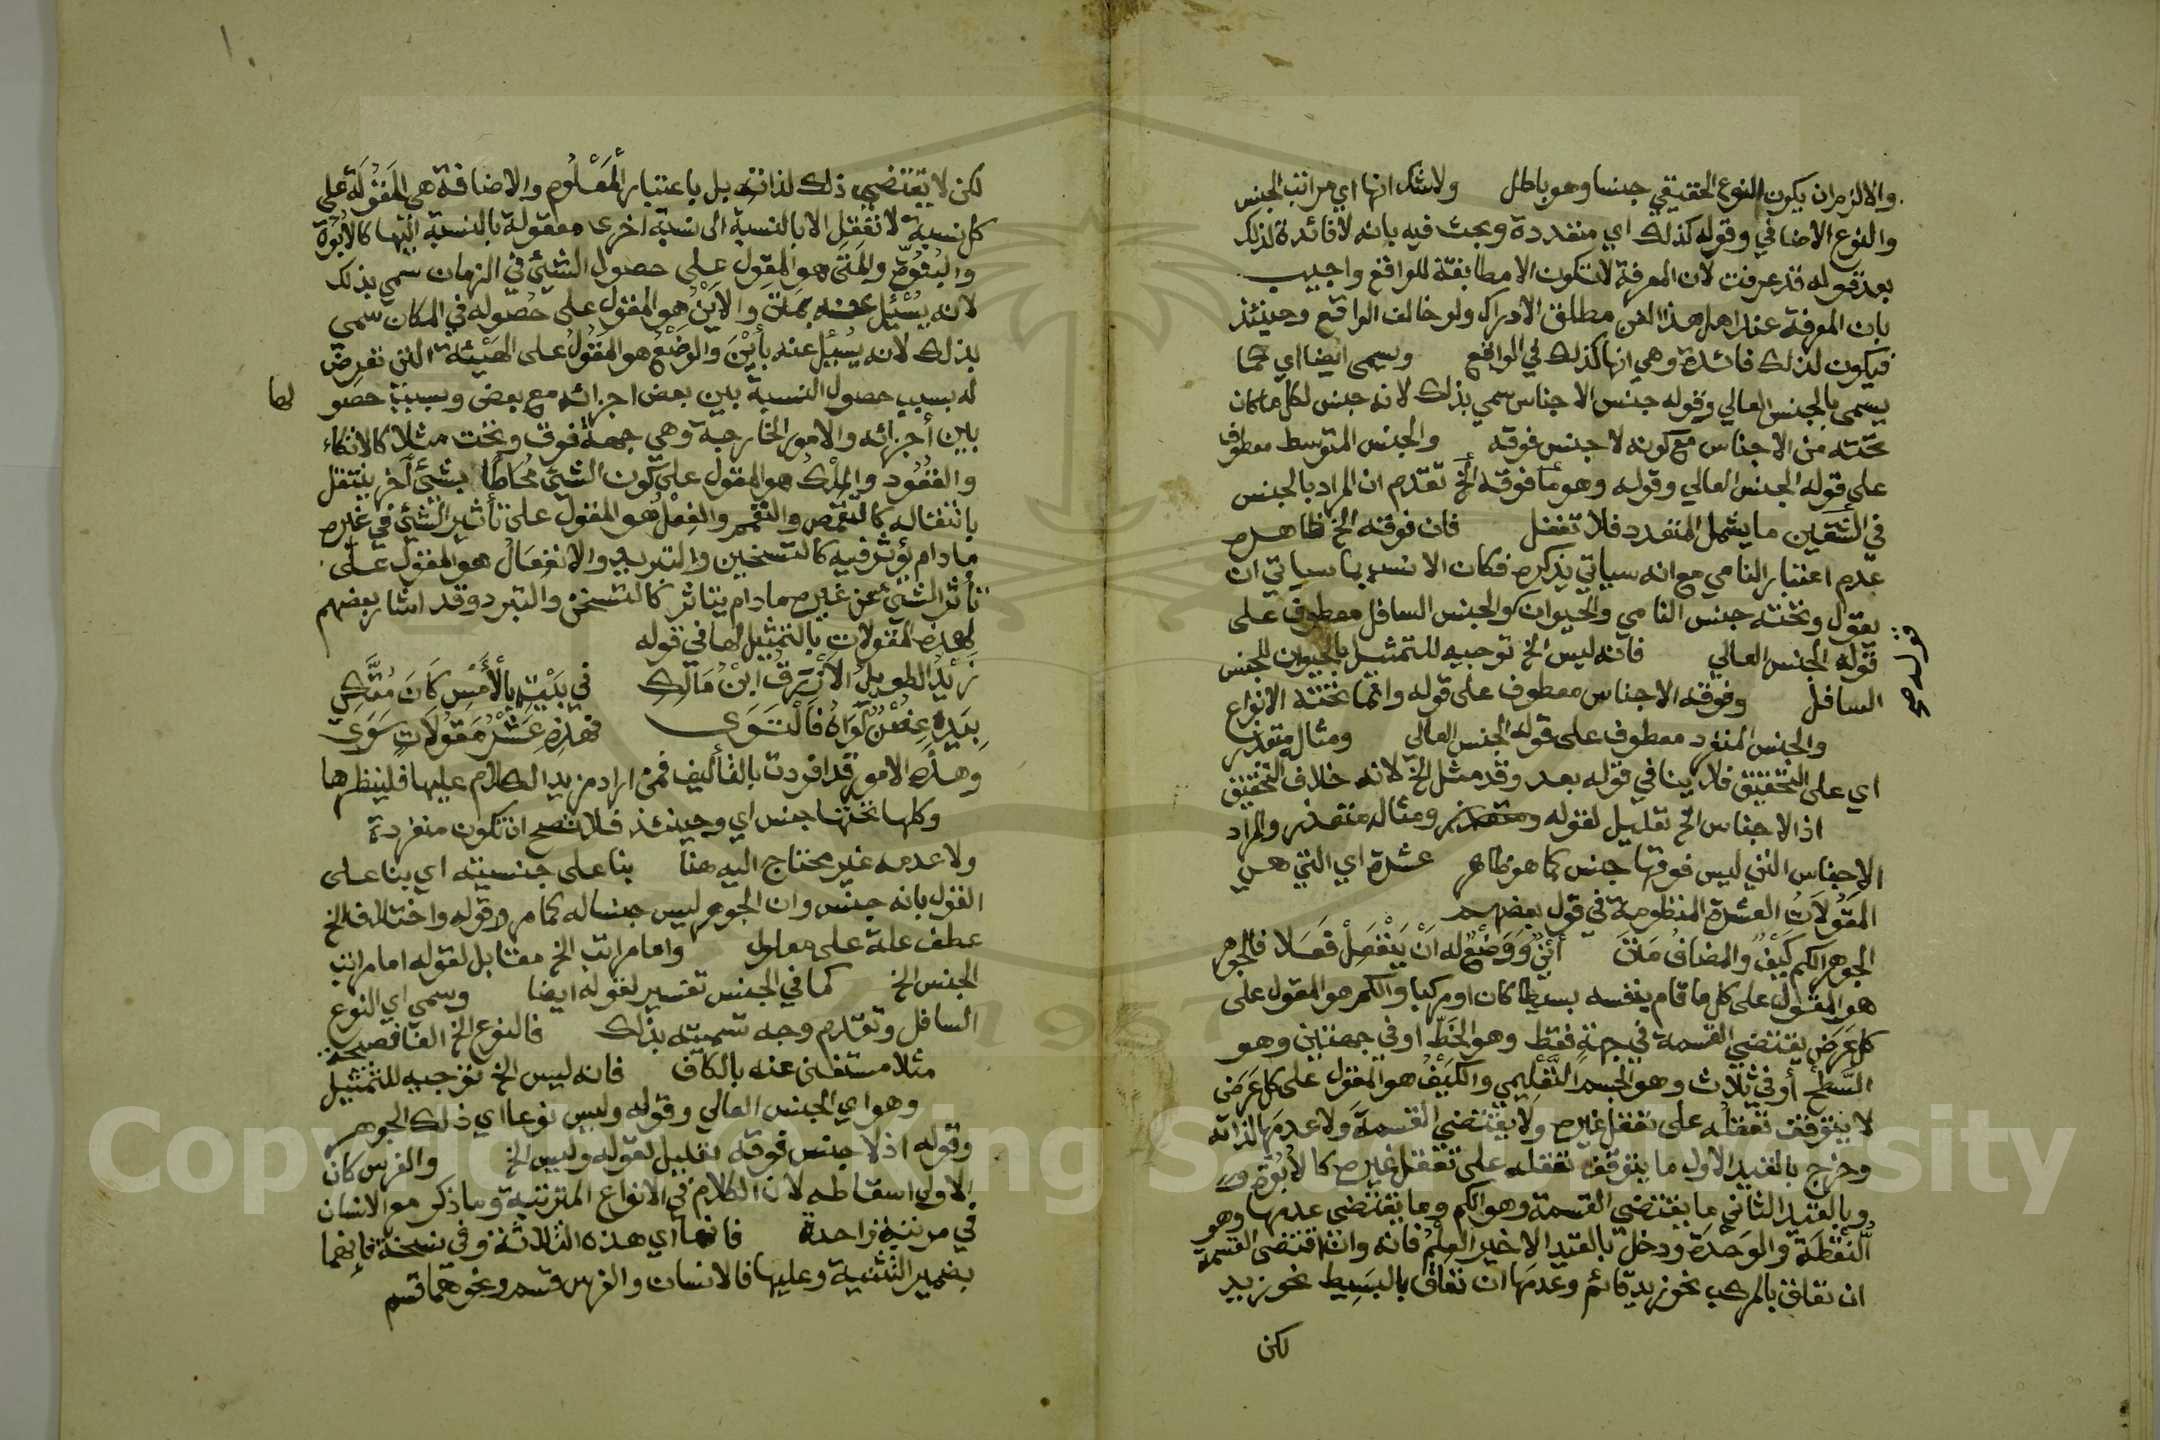 والا لزم ان يكون النوع الحقيقي جنسا وهو باطل ولا شك انها اي مراتب الجنس
والنوع الاضافي وقوله كذلك اي منفردة وبحث فيه بانه لا فائدة لذلك
بعد قوله قد عرفت لان المعرفة لا تكون الا مطابقة للواقع واجيب
بان المعرفة عند اهل هذا الفن مطلق الادراك ولو خالف الواقع وحينئذ
فيكون لذلك فائدة وهي انها كذلك في الواقع ويسمى ايضا اي كما
يسمى بالجنس العالي وقوله جنس الاجناس سمي بذلك لانه جنس لكل ما كان
تحته من الاجناس مع كونه لا جنس فوقه والجنس المتوسط معطوف
على قوله الجنس العالي وقوله وهو ما فوقه الخ تقدم ان المراد بالجنس
في الشقين ما يشمل المنفرد فلا تغفل فان فوقه الخ ظاهره
عدم اعتبار النامي مع انه سياتي يذكره فكان الانسب بما سياتي ان
يقول وتحته جنس النامي والحيوان كو الجنس السافل معطوف على
قوله الجنس العالي فانه ليس الخ توجيه للتمثيل بالحيوان للجنس
السافل وفوقه الاجناس معطوف على قوله وانما تحته الانواع
والجنس المنفرد معطوف على قوله الجنس العالي ومثاله متعذر
اي على التحقيق فلا ينافي قوله بعد وقد مثل الخ لانه خلاف التحقيق
اذ الاجناس الخ تعليل لقوله ومتعذر ومثاله متعذر والمراد
الاجناس التي ليس فوقها جنس كما هو ظاهر عشرة اي التي هي
المَقُولَاتُ العشرة المنظومة في قول بعضهم
الجوهر الكم كَيْفٌ والمضافُ مَتَى أَيْنٌ وَوَضْعٌ له اَنْ يَنْفَعِلْ فَعَلا فالجوهر
هو المقول على كل ما قام بنفسه بسيطا كان او مركبا والكم هو المقول على
كل عَرَض يقتضي القسمة في جهة فقط وهو الخَطّ او في جهتين وهو
السَّطح أو في ثلاث وهو الجسم التَّعْلِيمي والكَيْفُ هو المقول على كل عَرَض
لا يتوقف تعقله على تعقل غيره ولا يقتضي القسمةَ ولا عدمَها لذاته
وخرج بالقيد الاول ما يتوقف تعقله على تعقل غيره كالأبُوّة و
وبالقيد الثاني ما يقتضي القسمة وهو الكم وما يقتضي عدمها وهو
النُّقْطَة والوَحْدة ودخل بالقيد الاخير العِلْمُ فانه وان اقتضى القسمة
ان تعلق بالمركب نحو زيد قائم وعدمَها ان تعلق بالبسيط نحو زيد
لكن
قوله ح
لكن لا يقتضي ذلك لذاته بل باعتبار المَعْلُوم والاضافة هي المَقُولَة على
كل نسبة لا تعقل الا بالنسبة الى نسبة اخرى معقولة بالنسبة اليها كالأبُوّة
والبُنُوّة والمَتَى هو المقول على حصول الشيء في الزمان سمي بذلك
لانه يُسْئَل عنه بمتى والأيْنُ هو المقول على حصُوله في المكان سمي
بذلك لانه يُسْئَل عنه بأَيْنَ والوَضْعُ هو المَقُولُ على الهَيْئَة التي تعرض
له بسبب حصول النسبة بين بعض اجزائه مع بعض وبسبب حصو لها
بين أجزائه والامور الخارجة وهي جهة فوق وتحت مثلا كالاتكاء
والقُعُود والمِلْكُ هو المقول على كون الشيء مُحَاطًا بشيء آخر ينتقل
بانتقاله كالتَقَمُّص والتعمم والفِعْلُ هو المقول على تأثير الشيء في غيره
ما دام يؤثر فيه كالتسخين والتبريد والانفعَالُ هو المقول على
تأثر الشيء عن غيره ما دام يتاثر كالتسخن والتبرد وقد اشار بعضهم
لهذه المقولات بالتمثيل لها في قوله
زَيْدُ الطويلُ الأزْرَقُ ابْنُ مَالِكِ في بَيْتِهِ بِالأَمْسِ كَانَ مُتَّكِي
بِيَدِهِ غُصْنٌ لَوَاهُ فَالْتَوَى فهذه عَشْرُ مَقُولَاتٍ سَوَى
وهذه الامور قد افردت بالتأليف فمن اراد مزيد الكلام عليها فلينظرها
وكلها تحتها جنس اي وحينئذ فلا تصح ان تكون منفردة
ولا عدمه غير محتاج اليه هنا بنا على جنسيته اي بنا على
القول بانه جنس وان الجوهر ليس جنسا له كما مر وقوله واختلاف الخ
عطف علة على معلول واما مراتب الخ مقابل لقوله اما مراتب
الجنس الخ كما في الجنس تفسير لقوله ايضا وسمي اي النوع
السافل وتقدم وجه تسميته بذلك فالنوع الخ الفا فصيحة
مثلا مستغنى عنه بالكاف فانه ليس الخ توجيه للتمثيل
وهو اي الجنس العالي وقوله وليس نوعا اي ذلك الجوهر
وقوله اذ لا جنس فوقه تعليل لقوله وليس الخ والفرس كان
الاولى اسقاطه لان الكلام في الانواع المترتبة وما ذكر مع الانسان
في مرتبة واحدة فانها اي هذه الثلاثة وفي نسخة فإنهما
بضمير التثنية وعليها فالانسان والفرس قسم ونحوهما قسم